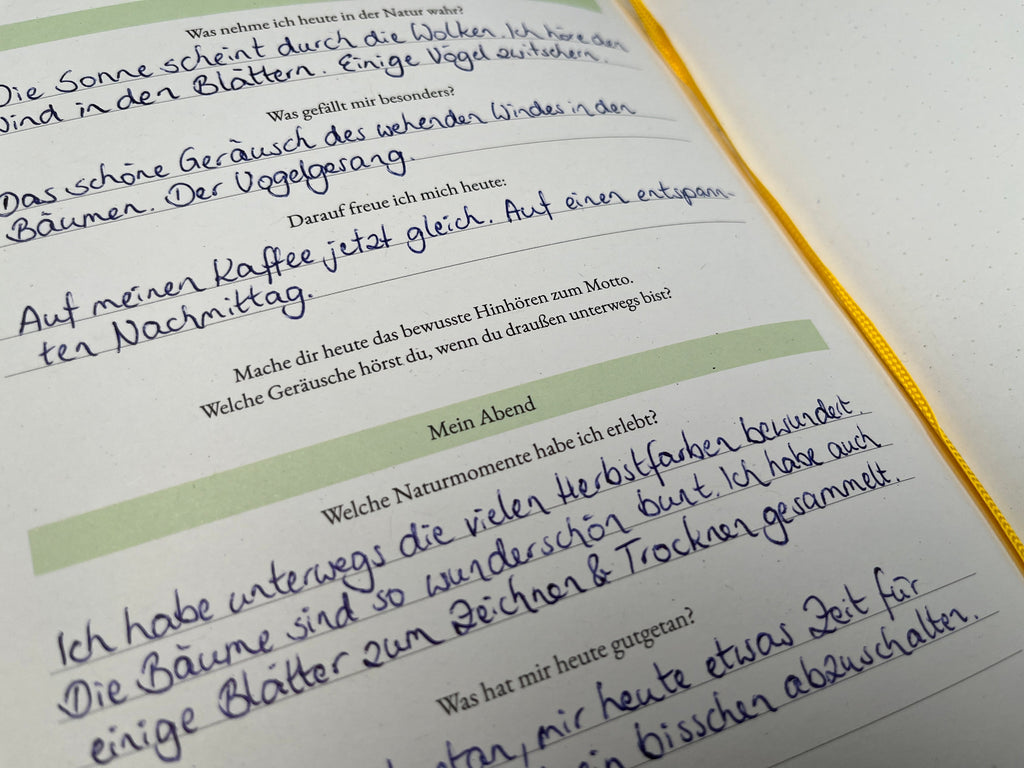 Was nehme ich heute in der Natur wahr?
Die Sonne scheint durch die Wolken. Ich höre den
Wind in den Blättern. Einige Vögel zwitschern.
Was gefällt mir besonders?
Das schöne Geräusch des wehenden Windes in den
Bäumen. Der Vogelgesang.
Darauf freue ich mich heute:
Auf meinen Kaffee jetzt gleich. Auf einen entspann-
ten Nachmittag.
Mache dir heute das bewusste Hinhören zum Motto.
Welche Geräusche hörst du, wenn du draußen unterwegs bist?
Mein Abend
Welche Naturmomente habe ich erlebt?
Ich habe unterwegs die vielen Herbstfarben bewundert.
Die Bäume sind so wunderschön bunt. Ich habe auch
einige Blätter zum Zeichnen & Trocknen gesammelt.
Was hat mir heute gutgetan?
mir heute etwas Zeit für
bisschen abzuschalten.